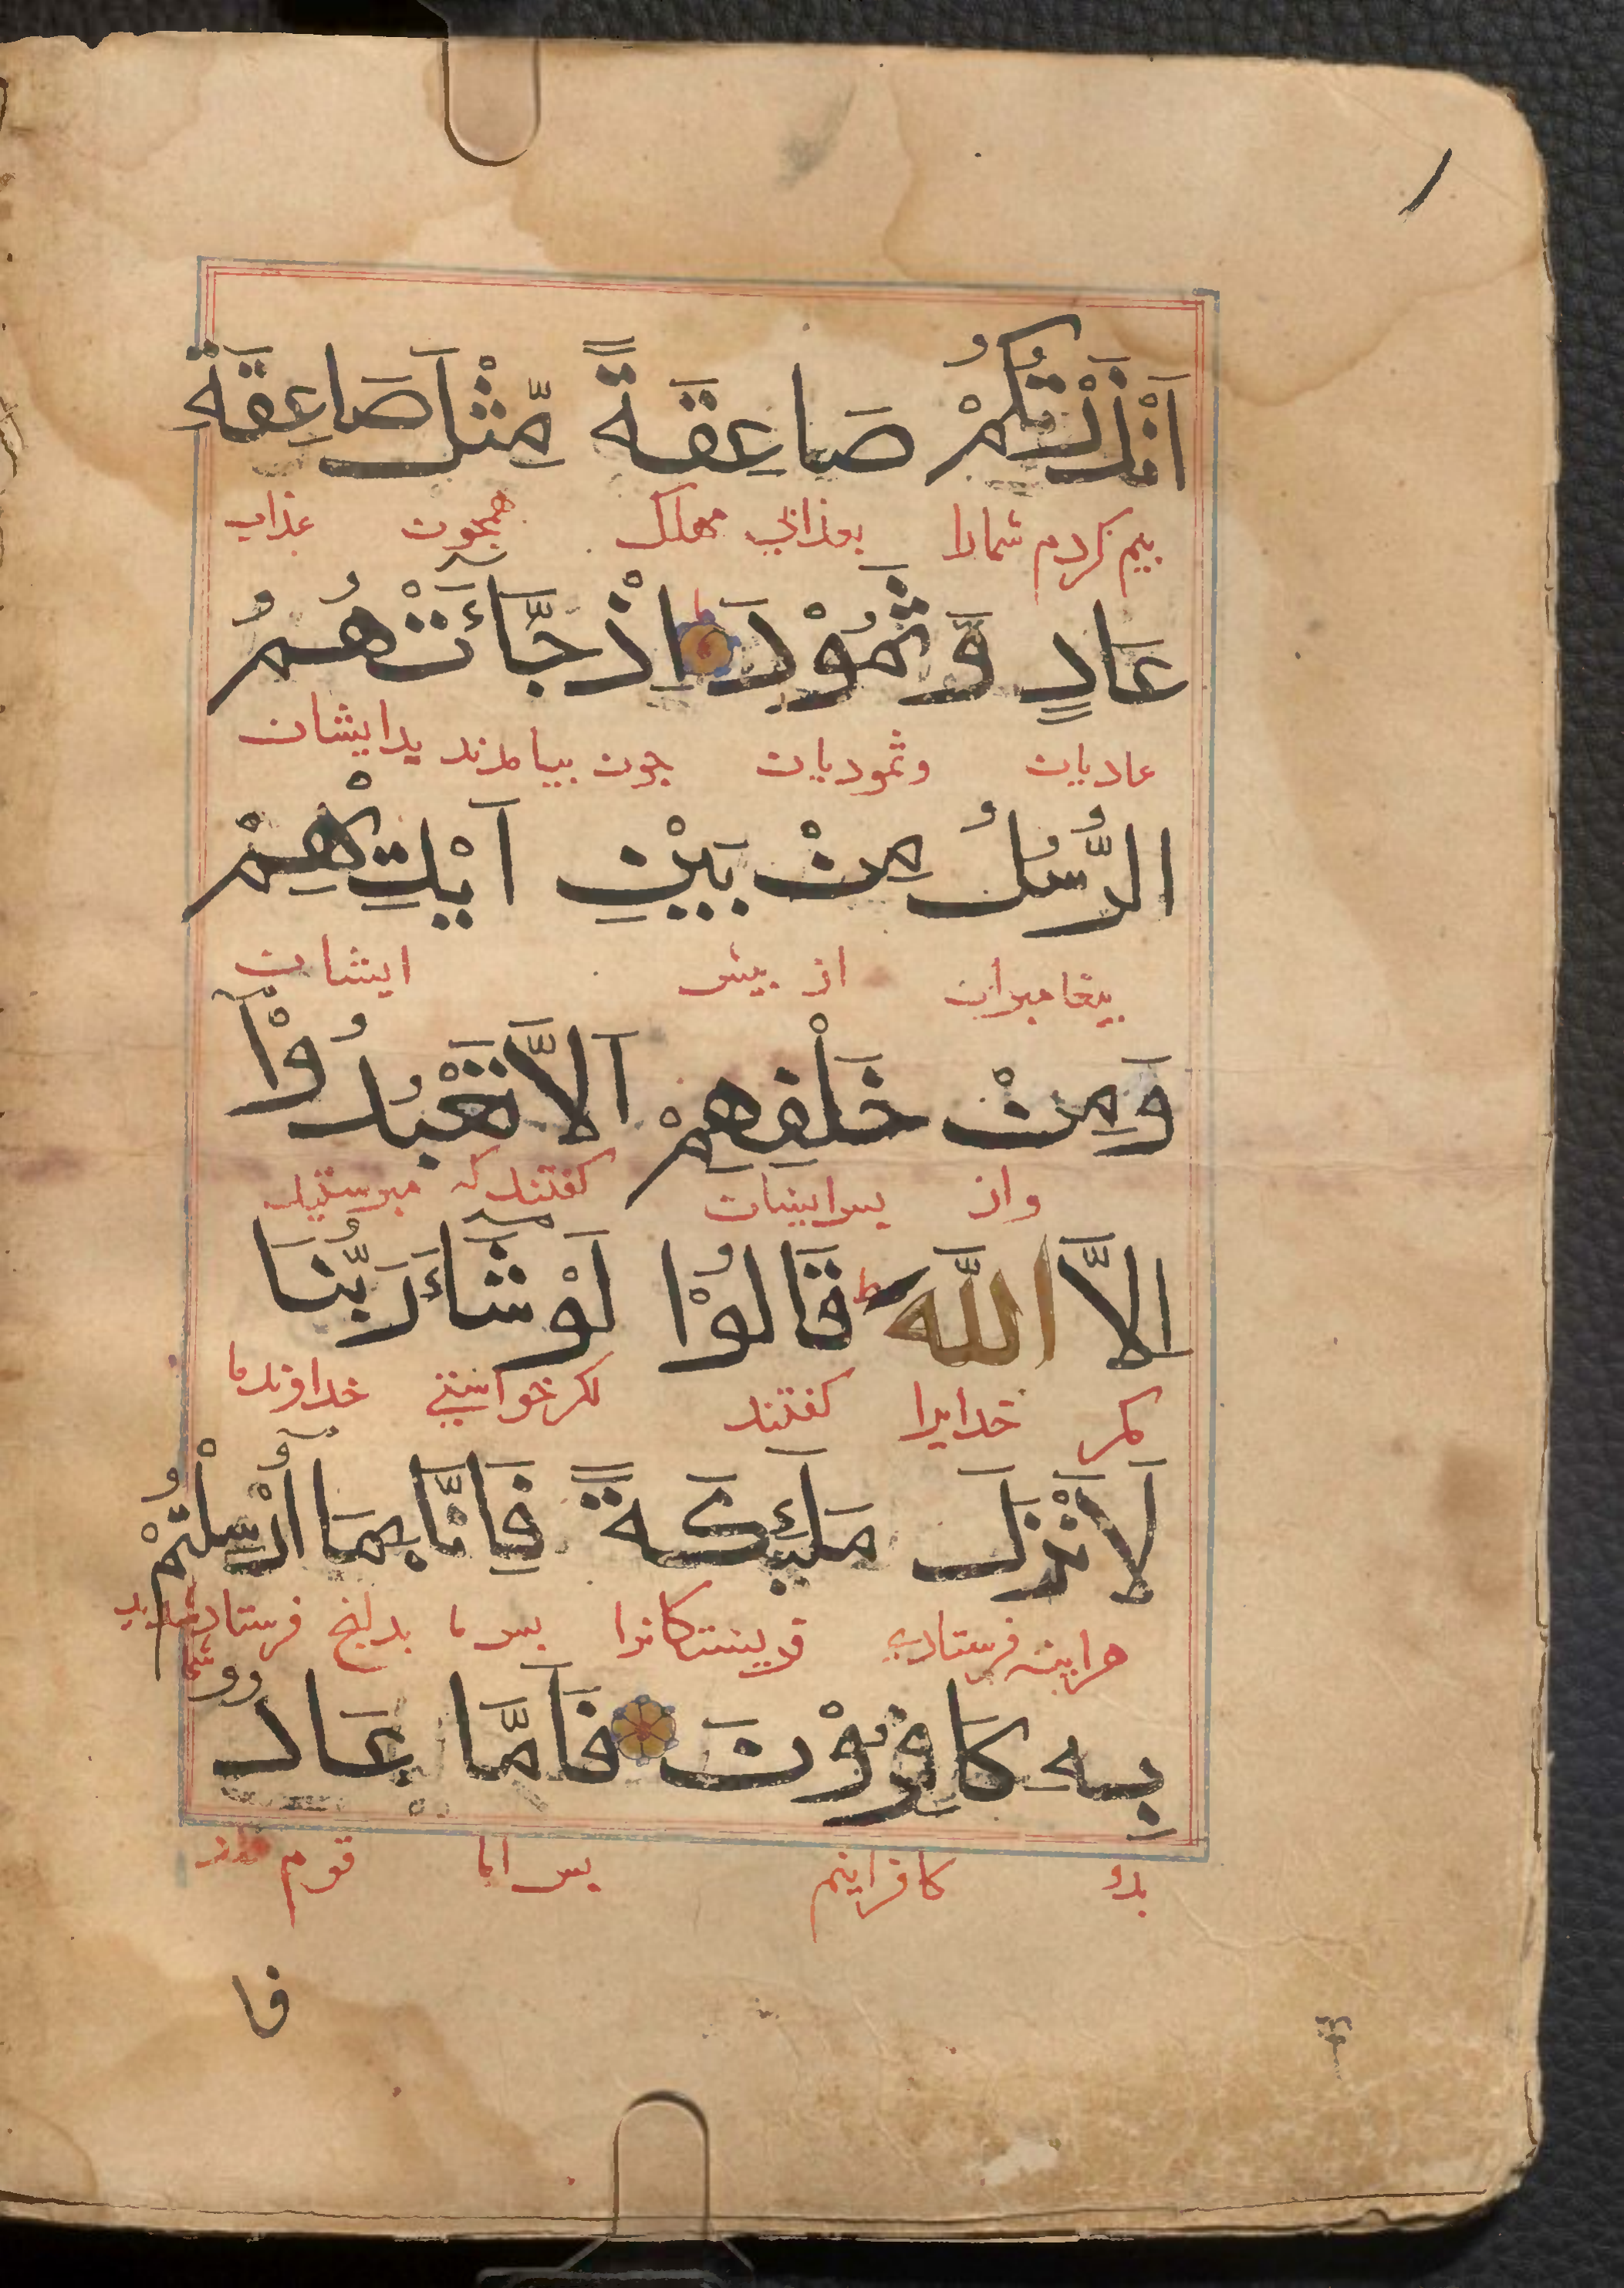 اَنْذَرْتُكُمْ صَاعِقَةً مِّثْلَ صَاعِقَةِ
بیم کردم شمارا بعذابی مهلک همچون عذاب
عَادٍ وَّثَمُوْدَ اِذْ جَّآئَتْهُمُ
عادیان وثمودیان چون بیامدند بدایشان
الرُّسُلُ مِنْ بَيْنِ اَيْدِيْهِمْ
بیغامبران از بیش ایشان
وَمِنْ خَلْفِهِمْ اَلَّا تَعْبُدُوْا
واز بس ایشان کفتند که مبرستید
اِلَّا اللَّهَ ط قَالُوْا لَوْ شَآءَ رَبُّنَا
مکر خدایرا کفتند اکر خواستی خداوند ما
لَاَنْزَلَ مَلٰٓئِكَةً فَاِنَّا بِمَآ اُرْسِلْتُمْ
هراینه فرستادی فریشتکانرا بس ما بدانچ فرستاده شدید
بِهٖ كَافِرُوْنَ فَاَمَّا عَادٌ
بدو کافرانیم بس اما قوم
فا